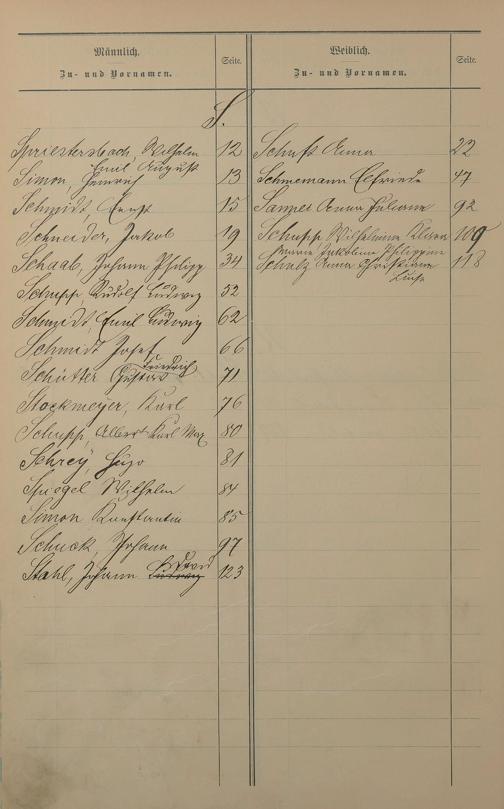 Männlich.
Zu- und Vornamen.
Seite.
S.
Spriestersbach, Wilhelm 12
Emil August
Simon, Heinrich 13
Schmidt, Ernst 15
Schneider, Jakob 19
Schaab, Johann Philipp 34
Schupp, Rudolf Ludwig 52
Schmidt, Emil Ludwig 62
Schmidt Josef 66
Friedrich
Schütter Gustav 71
Stockmeyer, Karl 76
Schupp, Albert Karl Max 80
Schrey, Hugo 81
Spiegel Wilhelm 84
Simon Konstantin 85
Schuck, Johann 97
Stahl, Johann Ludwig 123
Weiblich.
Zu- und Vornamen.
Seite.
Anna 22
Schnemann Elfriede 47
Anna Juliane 92
Schupp, Wilhelmine 109
Maria Philippine
Anna Christiane 118
Luise